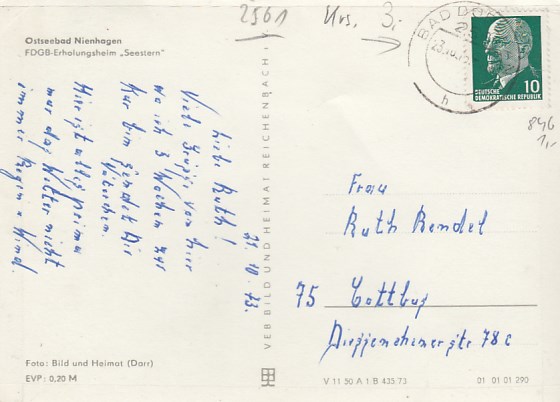 2561
Krs.
3,-
Ostseebad Nienhagen
FDGB-Erholungsheim „Seestern“
BAD DOB
DEUTSCHE
DEMOKRATISCHE REPUBLIK
10
846
1,-
21.10.73.
Liebe Ruth!
Viele Grüße von hier
wo ich 3 Wochen zur
Kur bin sendet Dir
Hier ist alles prima
nur das Wetter nicht
immer Regen u Wind.
VEB BILD UND HEIMAT REICHENBACH i
Frau
Ruth Bendel
75 Cottbus
78c
Foto: Bild und Heimat (Darr)
EVP: 0,20 M
V 11 50 A 1 B 435 73
01 01 01 290